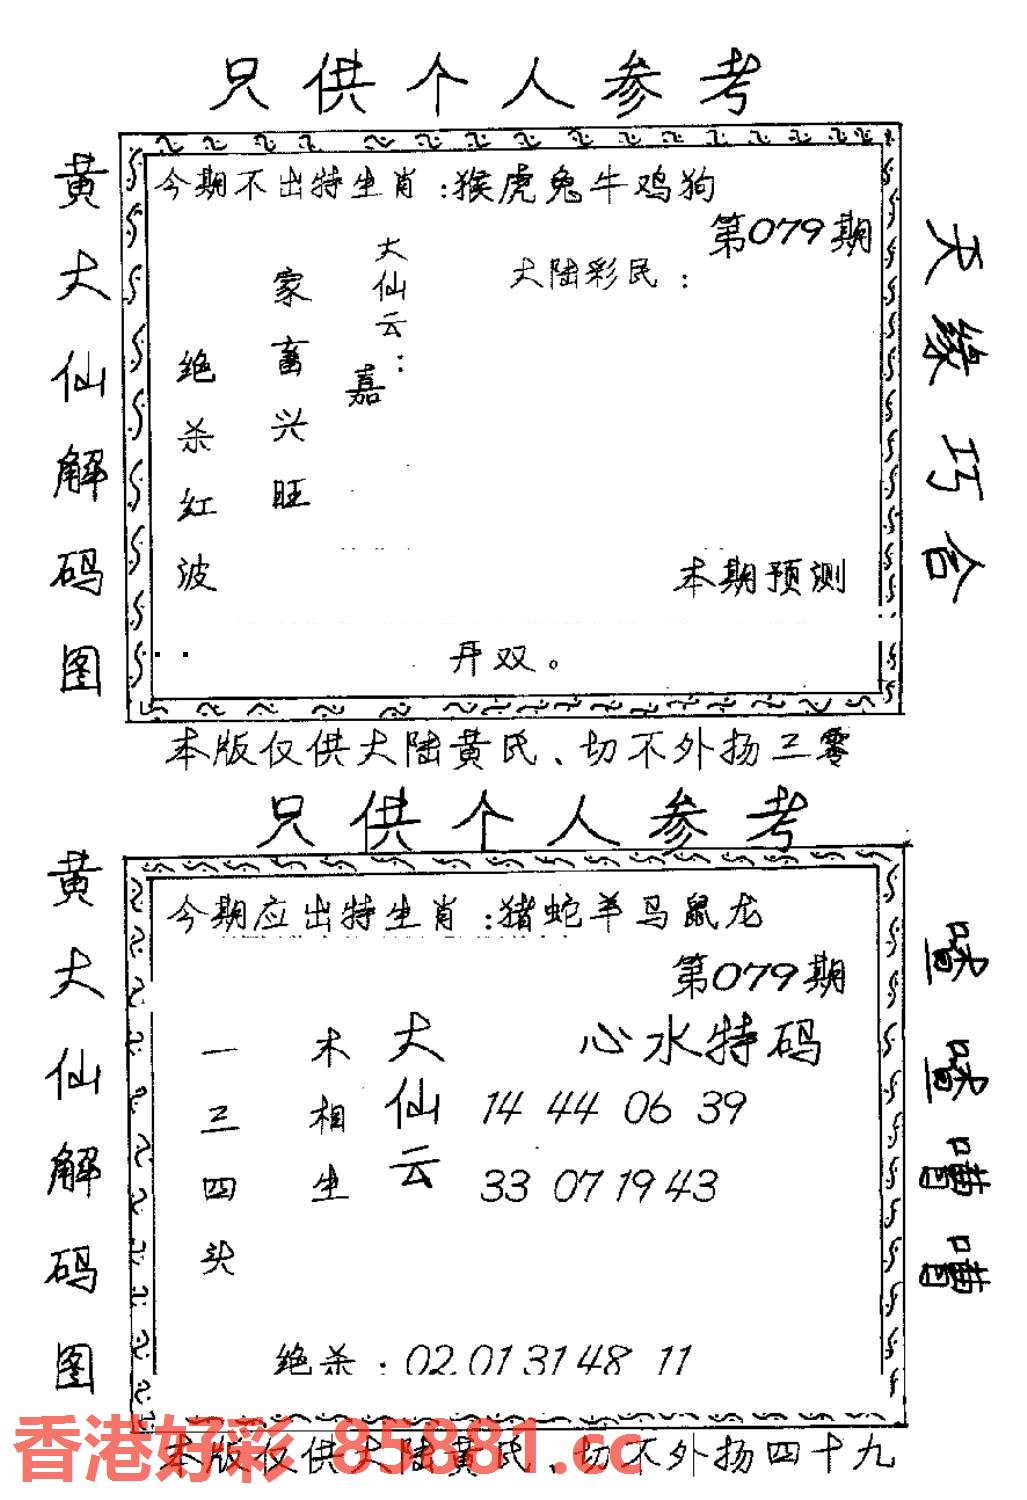 只供个人参考
黄大仙解码图
今期不出特生肖:猴虎兔牛鸡狗
第079期
大陆彩民:
大仙云:
嘉
家畜兴旺
绝杀红波
本期预测
开双。
天缘巧合
本版仅供大陆黄氏、切不外扬三零
只供个人参考
黄大仙解码图
今期应出特生肖:猪蛇羊马鼠龙
第079期
心水特码
大仙云
木相生
一三四头
14 44 06 39
33 07 19 43
绝杀:02.01 31 48 11
本版仅供大陆黄氏、切不外扬四十九
香港好彩 85881.cc